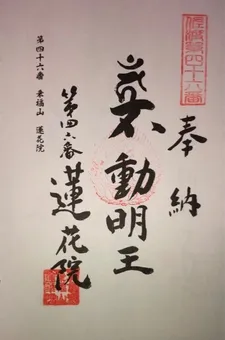 佐渡第四十六番
奉納
不動明王
第四六番
蓮花院
第四十六番 来福山 蓮花院